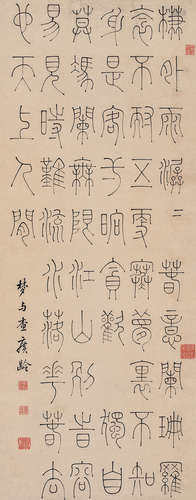 簾外雨潺二春意闌珊羅
衾不耐五更寒夢裏不知
身是客于晌貪歡獨自
莫馮闌無限江山別時容
易見時難流水落花春去
也天上人間